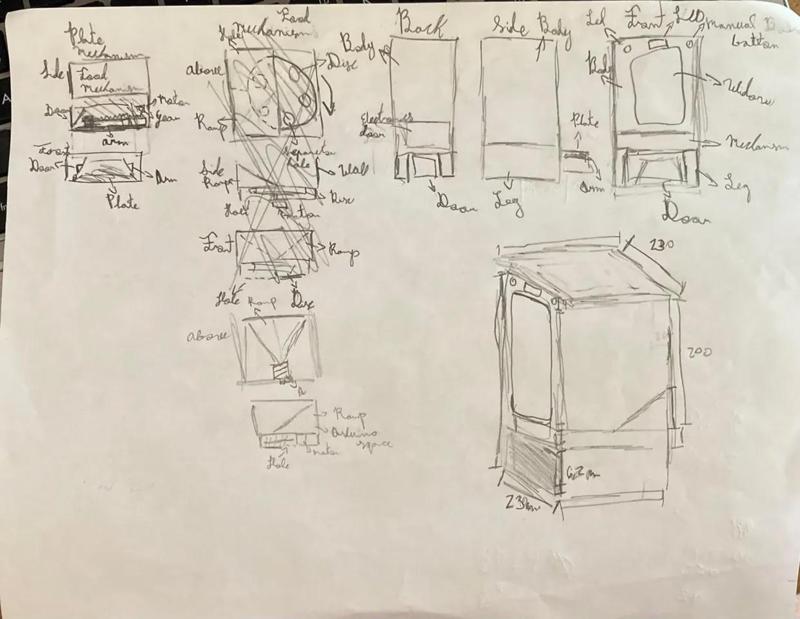 Plate
Mechanism
Side
Load
Mechanism
Door
Motor
Gear
arm
Front
Door
Arm
Plate
Load
Mechanism
Above
Disc
Ramp
Hole
Side
Ramp
Wall
Disc
Hole
Front
Ramp
Hole
Disc
Ramp
Above
Ramp
Arduino
space
motor
Hole
Back
Body
Electronics
door
Door
Side
Body
Plate
arm
Leg
Led
Front
LED
Manual
button
Body
Mechanism
Leg
Door
230
200